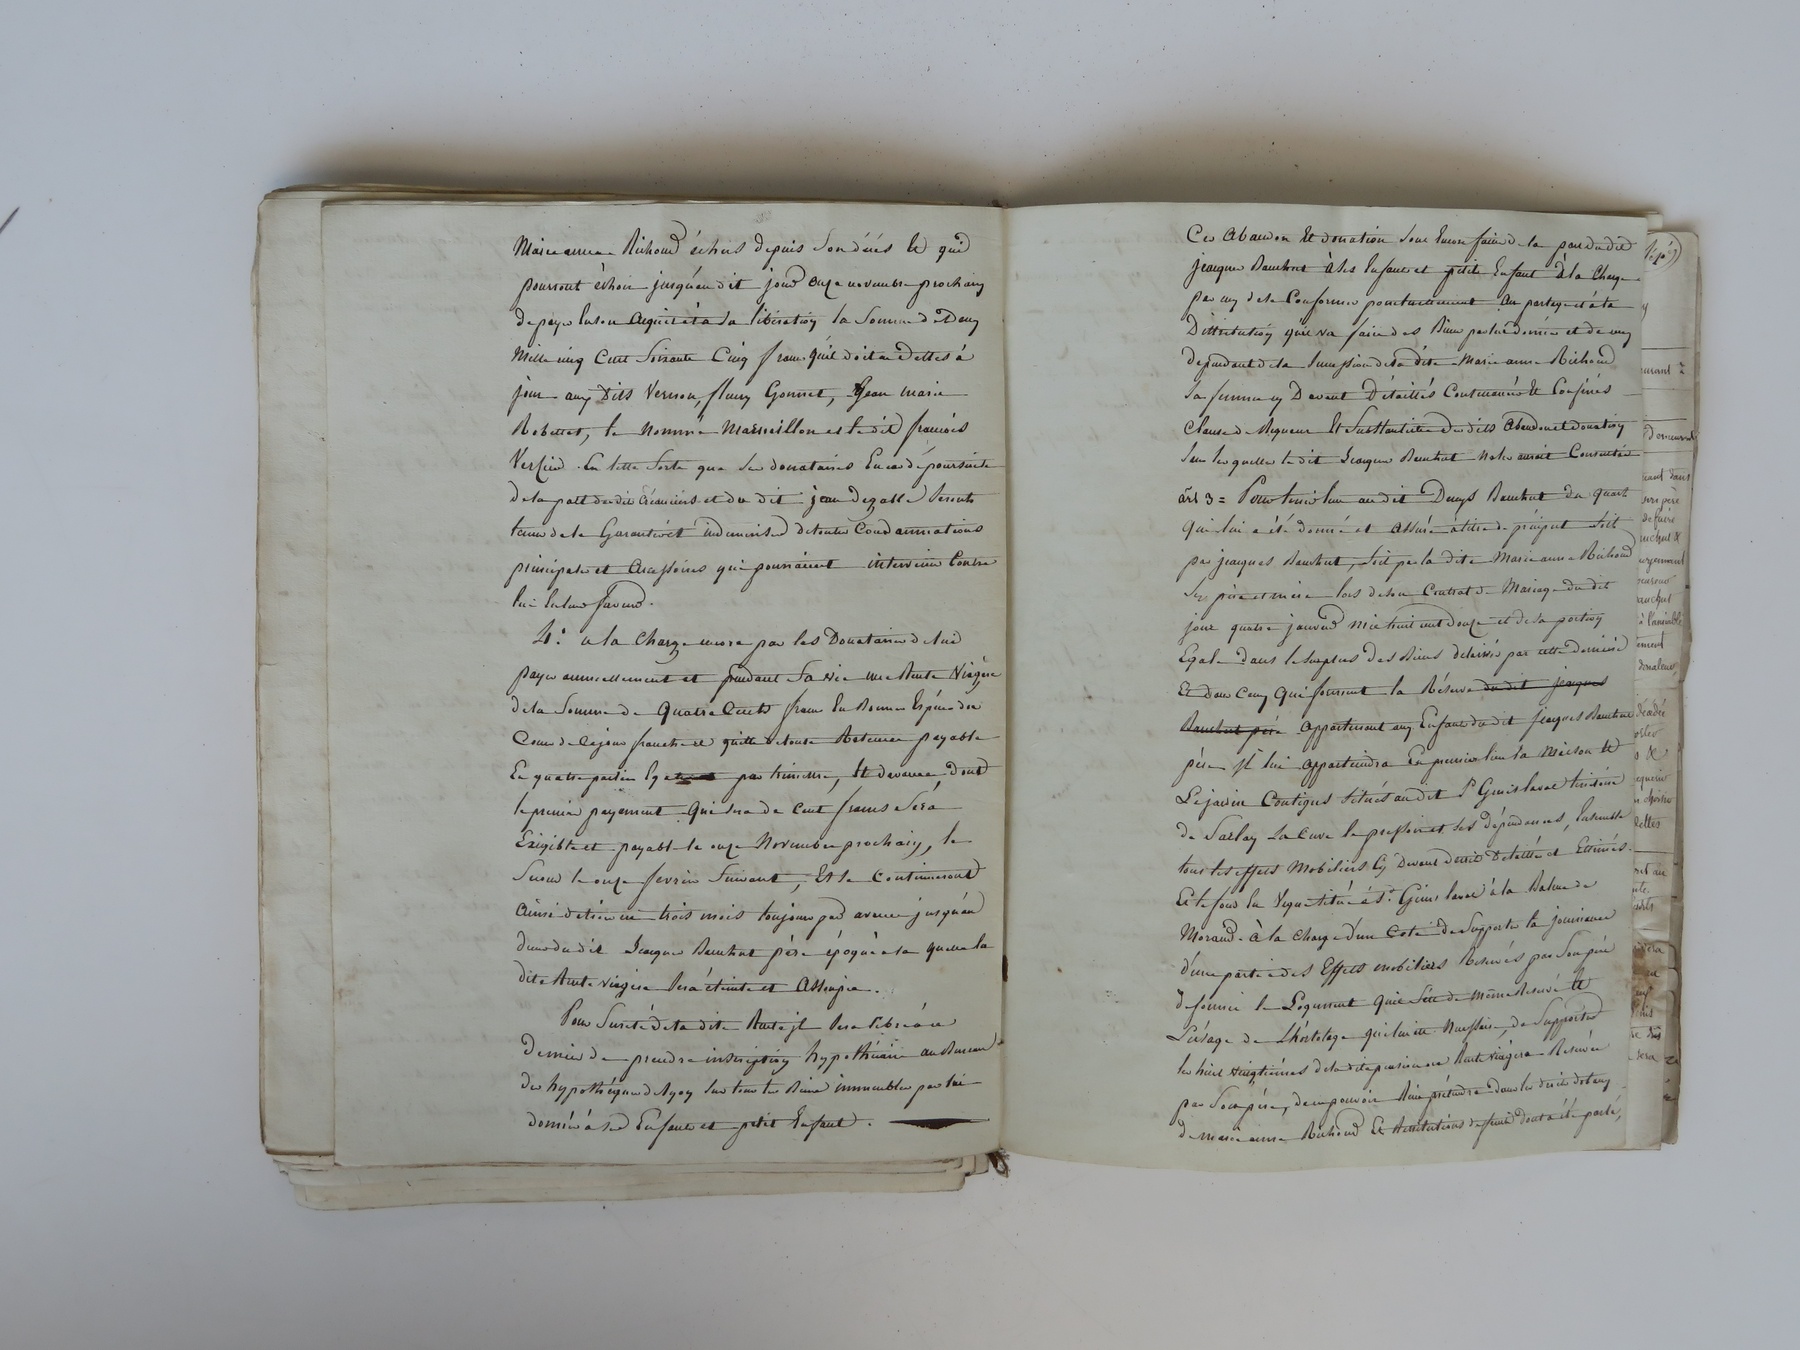 Marie anne Richoud échus depuis son décès et qui
pourront échoir jusqu'au dit jour onze novembre prochain
de payer en son acquit et à sa libération la somme de Deux
mille cinq cent soixante cinq francs qu'il doit en dettes à
jour aux dits Vernon, fleury Gonnet, Jean marie
Robettet, le nommé Marmeillon et le dit françois
En telle sorte que ses donataires En cas de poursuite
de la part desdits Créanciers et du dit jean degalle seront
tenus de le Garantir et indemniser de toutes Condamnations
principales et accessoires qui pourraient intervenir Contre
lui en leur faveur.
4.° a la Charge encore par les Donataires de lui
payer annuellement et pendant sa vie une Rente Viagère
de la Somme de Quatre Cents francs En Bonnes Espèces du
Cours de ce jour franche et quitte de toute Retenue payable
En quatre parties Egales par trimestre, Et d'avance, dont
le premier payement qui sera de cent francs sera
Exigible et payable le onze Novembre prochain, le
Second le onze fevrier Suivant, Et se Continueront
ainsi de trois en trois mois toujours par avance jusqu'au
deces du dit Jacques Bauchut père époque à laquelle la
dite Rente viagère sera éteinte et assoupie.
Pour Sureté de la dite Rente il sera libre à ce
dernier de prendre inscription hypothécaire au Bureau
des hypothèques de Lyon Sur tous les Biens immeubles par lui
donnés à ses Enfants et petit Enfant.
Ces abandon Et donation sont Encore faits de la part du dit
jacques Bauchut à ses Enfants et petits Enfant à la charge
par eux de se Conformer ponctuellement au partage et à la
Distribution qu'il va faire des Biens par lui donnés et de ceux
dependant de la Succession de la dite Marie anne Richoud
sa femme cy Devant Détaillés Contenancés Et Confinés
Clause de Rigueur Et Substantielle des dits abandon et donation
Sans lesquelles le dit Jacques Bauchut n'y aurait Consenti
art 3 = Pour tenir lieu au dit Denys Bauchut du quart
qui lui a été donné et assuré à titre de préciput soit
par jacques Bauchut, soit par la dite Marie anne Richoud
Ses père et mère lors de son Contrat de Mariage du dit
jour quatre janvier mil huit cent douze et de sa portion
Egale dans le surplus des Biens délaissés par cette dernière
Et dans Ceux qui forment la Réserve du dit jacques
Bauchut père appartenant aux Enfants du dit jacques Bauchut
père Il lui appartiendra En premier lieu la Maison Et
Le jardin Contigus Situés au dit St Genis laval
la Cuve le pressoir et ses dépendances, Ensemble
tous les effets Mobiliers Cy Devant décrits Détaillés et Estimés.
Et le fond En Vigne situé à St Genis laval à la Balme de
Morand. à la charge d'un Coté de Supporter la jouissance
d'une partie des Effets mobiliers Reservés par Son père
de fournir le Logement qu'il s'est de même Reservé Et
L'usage de L'hortolage qui lui est nécessaire, de Supporter
les huit vingtièmes de la dite pension ou Rente viagère Réservée
par Son père, de ne pouvoir Rien prétendre dans les droits dotaux
de marie anne Richoud Et Restitutions de fruits dont a été parlé,